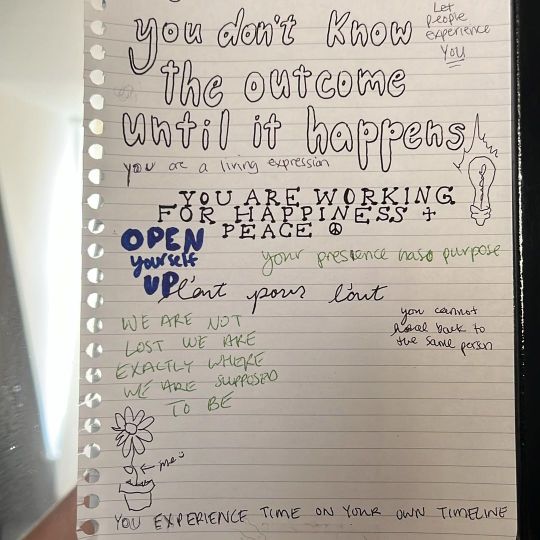 Let
people
experience
You
you don't know
the outcome
until it happens
you are a living expression
YOU ARE WORKING
FOR HAPPINESS +
PEACE ☮
OPEN
yourself
UP
your presence has a purpose
l'art pour l'art
you cannot
heal back to
the same person
WE ARE NOT
LOST WE ARE
EXACTLY WHERE
WE ARE SUPPOSED
TO BE
← me :)
YOU EXPERIENCE TIME ON YOUR OWN TIMELINE